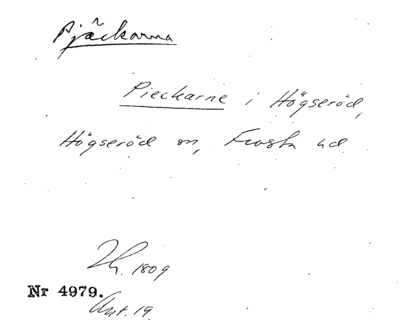 Pjäckarna
Pieckarne i Högseröd,
Högseröd sn, Frosta hd
1809
Nr 4979.
Ant. 19.